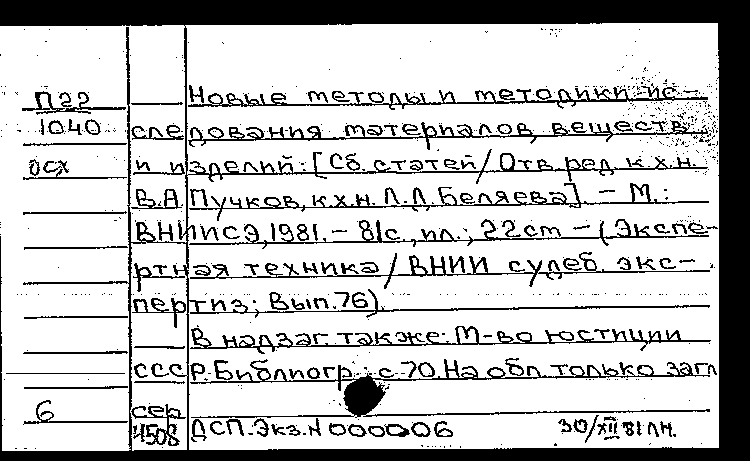 П22 Новые методы и методики ис-
1040 следования материалов, веществ
осх и изделий: [Сб. статей/Отв. ред. к.х.н.
В.А. Пучков, к.х.н. Л.Д. Беляева]. – М.:
ВНИИСЭ, 1981. – 81с., ил.; 22cm – (Экспе-
ртная техника/ВНИИ судеб. экс-
пертиз; Вып. 76).
В надзаг. также: М-во юстиции
СССР. Библиогр.: с 70. На обл. только загл
6 сер
4508 ДСП. Экз. N 000006 30/XII 81 ЛН.